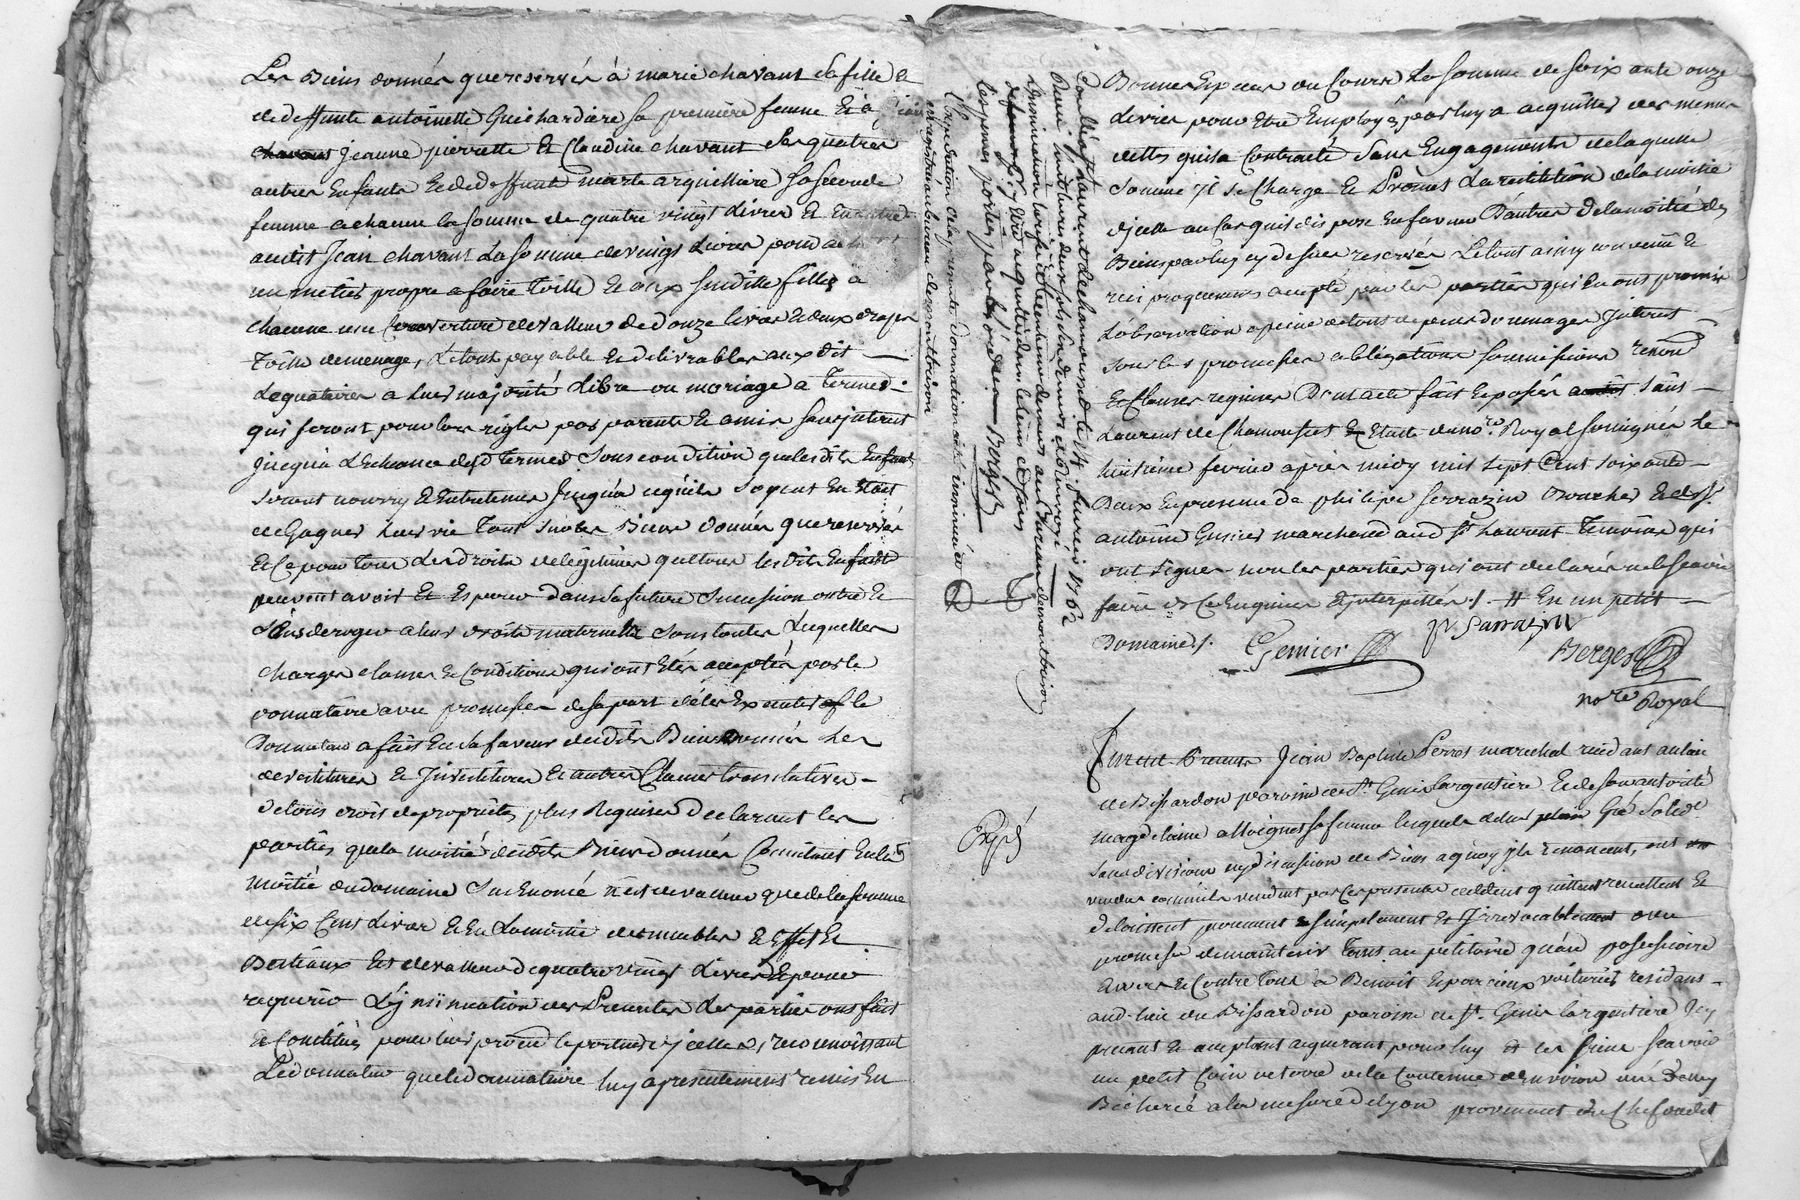 Les Biens donnés que reservés à marie chavant sa fille &
de deffunte antoinette Guichardiere sa première femme Et à
chavant jeanne pierrette Et Claudine chavant ses quatres
autres Enfants & de deffunte marte arquilliere sa seconde
femme a chacune la somme de quatre vingt Livres &
audit Jean chavant La somme de vingt Livres pour
un métier propre a faire Toille & aux susdittes filles a
chacune une Couverture de valleur de douze livres & deux draps
Toille de menage, Le tout payable & delivrables aux dits
Legataires a leurs majorité Libre ou mariage a Termes
qui seront pour lors règlés par parents & amis sans interest
jusqu'a L'Echeance desd. Termes, sous condition que lesdits Enfants
seront nourry & Entretenus jusqu'a ce qu'ils soyent En Etat
de Gagner Leurs vie Tout sur les Biens Donnés que reservés
Et Ce pour Tous Les droits de legitimes que tous lesdits Enfants
peuvent avoir Et Esperer dans sa future Succession outre &
sans deroger a leurs droits maternels sous toutes Lesquelles
charges clauses & Conditions qui ont Etés acceptés par le
donnataire avec promesse de sa part de les Executer le
Donnateur a fait En sa faveur desdits Biens Donnés les
devestitures & Investitures & autres Clauses translatives
de tous droits de proprietés, plus Requises Declarant les
parties que la moitié desdits Biens donnés Consistant En la
Moitié du domaine Sus Enoncé n'est de valleur que de la somme
de six Cens Livres & En La moitié des meubles & Effets &
Bestiaux Est de valleur de quatre vingt Livres & pour
requerir L'insinuation des Presentes Les parties ont fait
& Constitués pour leurs procureur le porteur d'icelles, reconnoissant
Le donnateur que le donnataire luy a presentement remis En
Expedition de la presente Donnation a été insinuée &
enregistrée au bureau de montbrison
Controllé à St Laurent de chamousset le 14 fevrier 1762
Receu
insinuation au Bureau de montbrison
les peines portées par les édits — Berger
Expé
Bonnes Especes au Cours La somme de soixante onze
Livres pour Etre Employés par luy a acquitter des menues
dettes qu'il a Contracté Sans Engagements de laquelle
Somme il se Charge & Promet La restitution de la moitié
d'icelle au cas qu'il dispose En faveur D'autres De la moitié des
Biens par luy cy dessus reservés Le tout ainsy convenu &
reciproquement accepté par les parties qui En ont promis
L'observation a peine de tous depens dommages Interets
Sous les promesses obligations soumissions renonc.
& Clauses requises Dont acte fait & passé à Saint
Laurent de Chamousset Etude du no.re Royal soussigné le
huitième fevrier après midy mil sept Cent soixante
Deux En presence de philipe serrazin Boucher & de Sr
antoine Genier marchand aud St Laurent Temoins qui
ont signés non les parties qui ont declarés ne le scavoir
faire de Ce Enquises & interpellées /. # En un petit
Domaine /. Genier P. Sarrazin
Berger
no.re Royal
Furent Presents Jean Baptiste Perret marechal residant au lieu
de Bissardon paroisse de St Genis largentière & de son autorité
magdelaine alloignet sa femme lesquels de leur plein Gré Solid.t
sans division ny discussion de Biens a quoy ils renoncent, ont
vendu comme ils vendent par Ces presentes cedent quittent remettent &
delaissent purement & simplement Et Irrevocablement avec
promesse de maintenir Tant au petitoire qu'au possessoire
Envers & Contre tous à Benoit Eparcieux voiturier residant
aud. lieu de Bissardon paroisse de St. Genis largentière Icy
present & acceptant acquerant pour luy et les siens sçavoir
un petit Coin de terre de la Contenue d'Environ une Demy
Bicherée a la mesure de Lyon provenant du Chef dudit